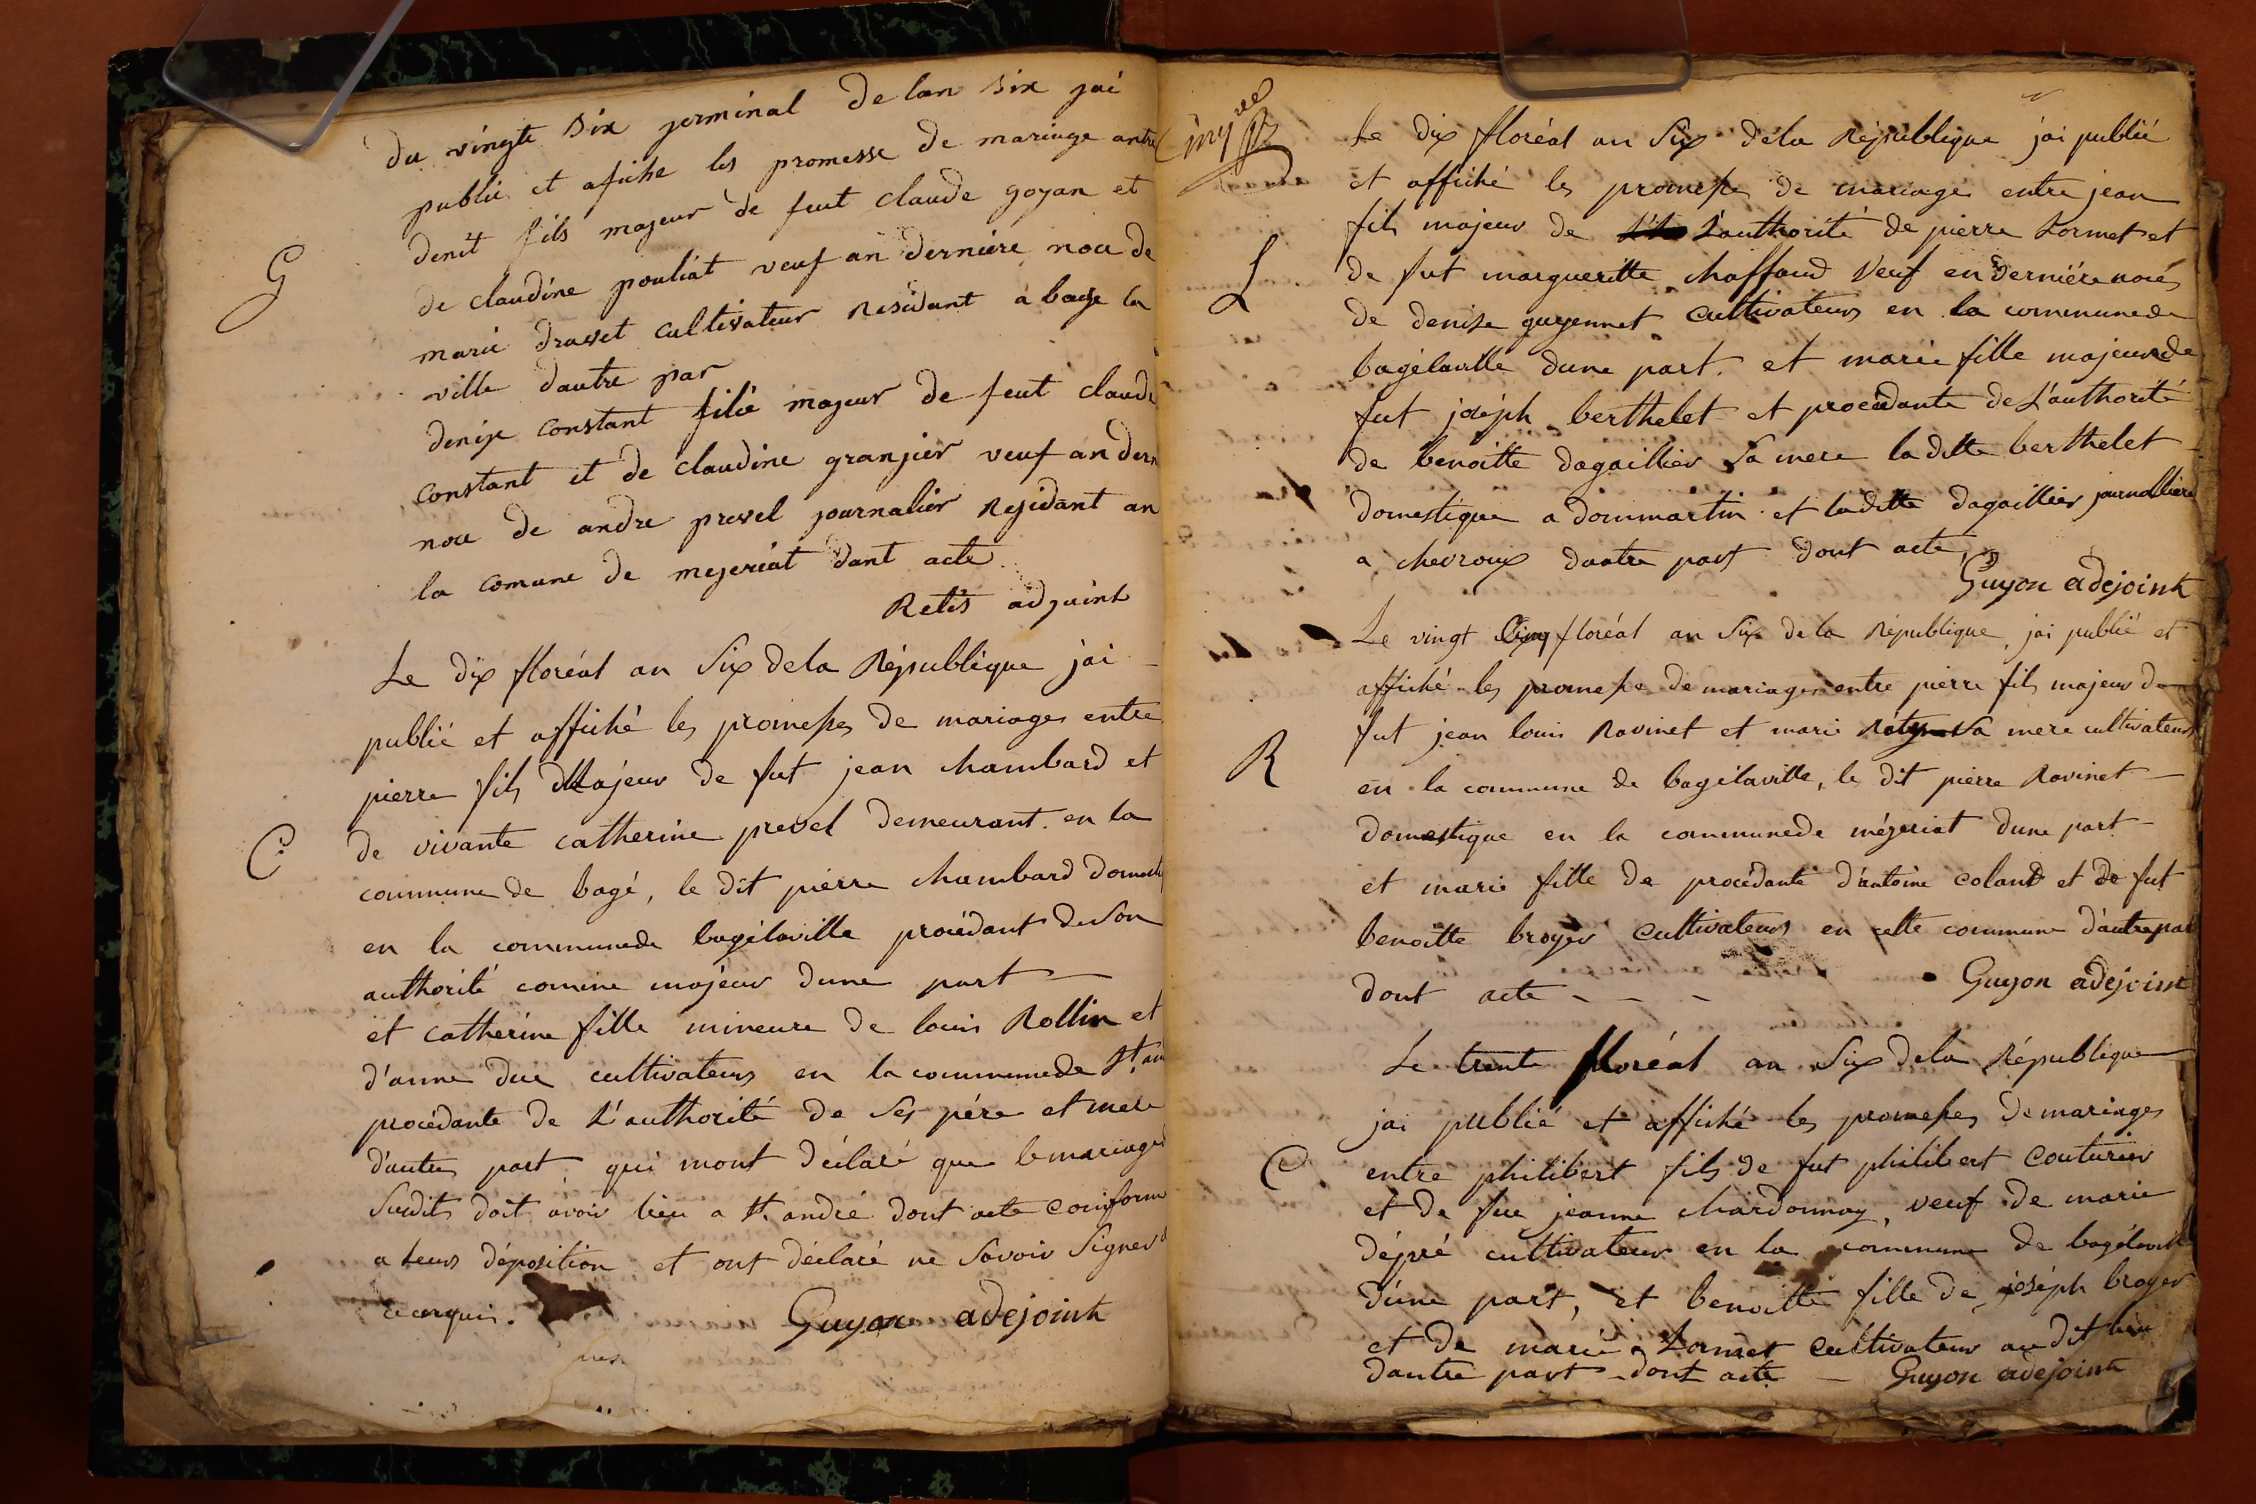 du vingte six jerminal de lan six jai
publie et afiche les promesse de mariage antre
denit fils majeur de feut claude goyan et
G
de claudine pouliat veuf an derniere noce de
marie dravet cultivateur Residant a bage la
ville dautre par
denise constant filie majeur de feut claude
constant et de claudine granjier veuf an dern
noce de andre prevel journalier Residant an
la comune de mejeriat dant acte
Retis adjoint
Le dix floréal an Six dela République jai
publié et affiché les promesses de mariages entre
pierre fils Majeur de fut jean chambard et
C
de vivante catherine prevel demeurant en la
commune de bagé, le dit pierre chambard domesti
en la commune de bagélaville procédant de Son
authorité comme majeur dune part
et catherine fille mineure de louis Rollin et
d'anne duc cultivateurs en la commune de St. an
procédante de L'authorité de Ses pére et mere
d'autre part qui mont déclaré que le mariage
Susdits doit avoir lieu a St. andré dont acte conforme
a leurs déposition et ont déclaré ne Savoir Signer
ce enquis.
Guyon adejoint
Le dix floréal an Six dela République jai publié
et affiché les promesses de mariage entre jean
fils majeur de L'authorité de pierre Lormet et
L
de fut margueritte chaffaud Veuf en derniére nocés
de denise guyennet cultivateurs en la commune de
bagélaville dune part. et marie fille majeur de
fut joséph berthelet et procédante de L'authorité
de benoitte dagaillier Sa mere la ditte berthelet
domestique a dommartin et la ditte dagaillier journalliere
a chevroux dautre part dont acte
Guyon adejoint
Le vingt Cinq floréal an Six de la République, jai publié et
affiché les promesse de mariages entre pierre fils majeur de
fut jean louis Ravinet et marie Sa mere cultivateurs
R
en la commune de bagélaville, le dit pierre Ravinet
domestique en la commune de mézeriat dune part
et marie fille de procédante d'antoine coland et de fut
benoitte broyer cultivateurs en cette commune d'autre part
dont acte
Guyon adejoint
Le trente floréal an Six dela République
jai publié et affiché les promesses de mariages
C
entre philibert fils de fut philibert Couturier
et de fue jeanne chardonnay, veuf de marie
dépré cultivateur en la commune de bagélaville
d'une part, et benoitte fille de joséph broyer
et de marie Lormet cultivateur au dit lieu
dautre part dont acte Guyon adejoint